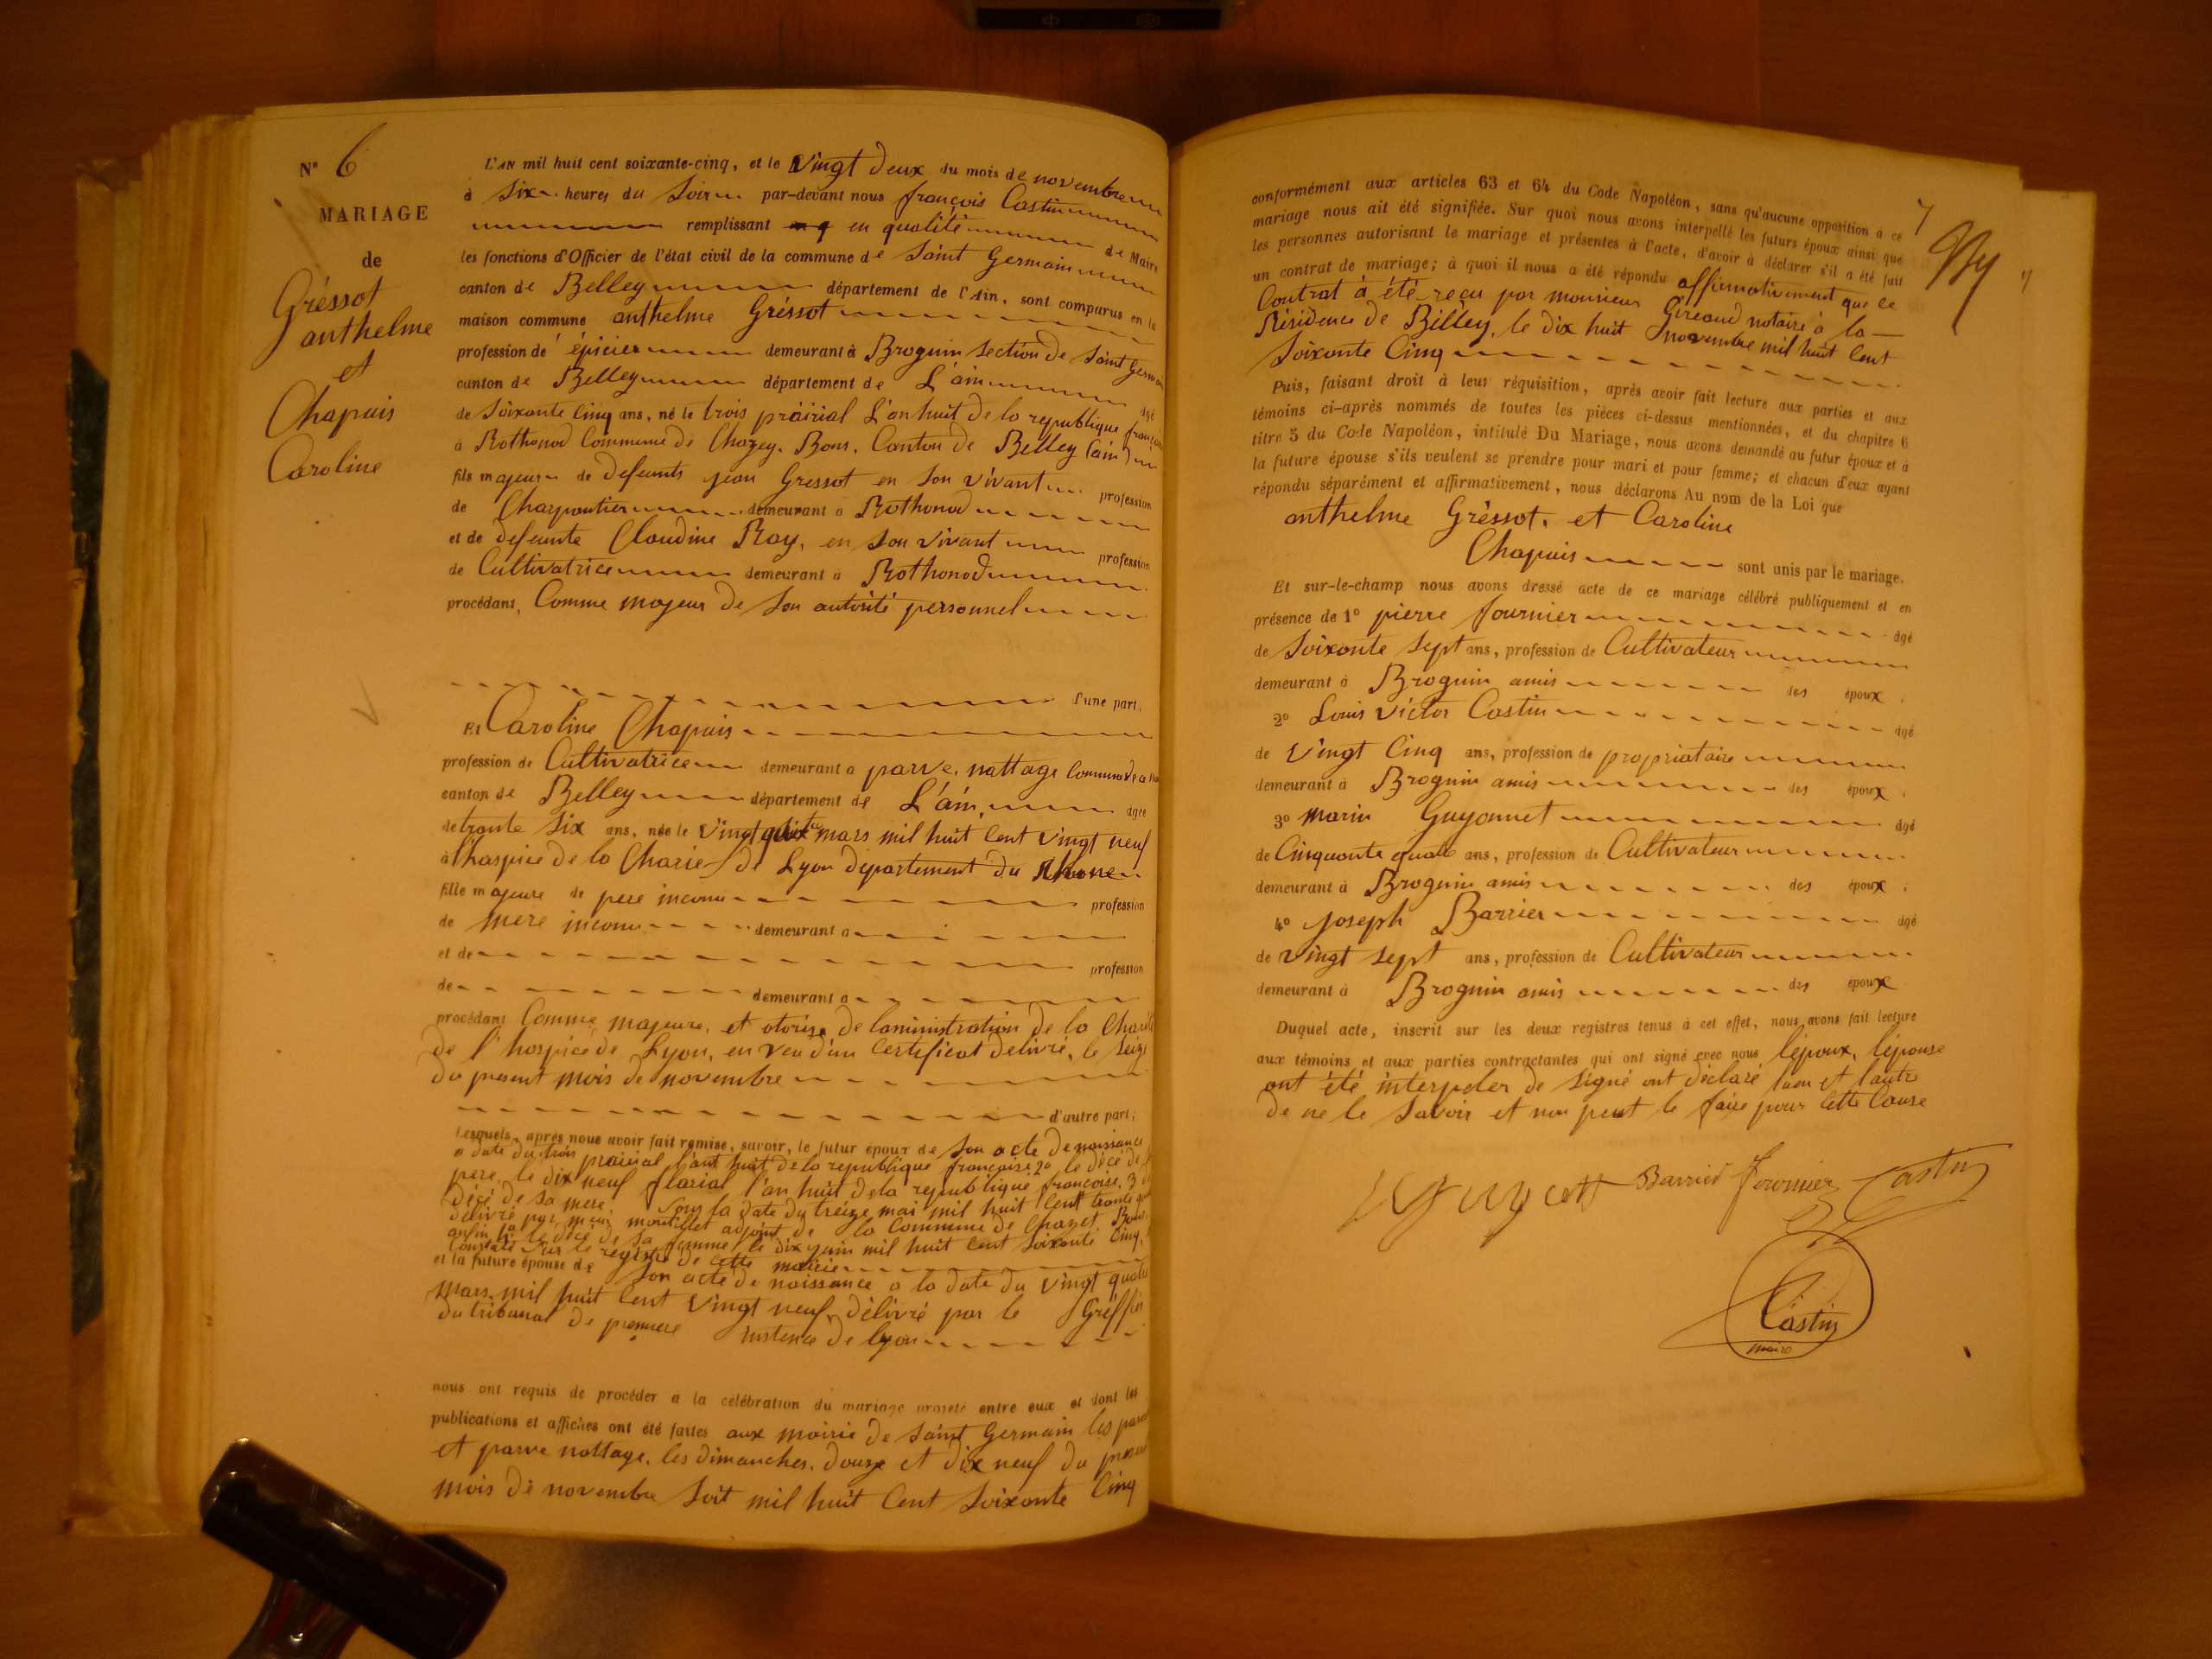 N° 6
MARIAGE
de
Gréssot
anthelme
et
Chapuis
Caroline
L'AN mil huit cent soixante-cinq, et le vingt deux du mois de novembre
à six heures du soir par-devant nous françois Castin
remplissant en qualité de Maire
les fonctions d'Officier de l'état civil de la commune de Saint Germain
canton de Belley département de l'Ain, sont comparus en la
maison commune anthelme Gréssot
profession de épicier demeurant à Brognin section de Saint Germain
canton de Belley département de L'ain âgé
de soixante cinq ans, né le trois prairial L'an huit de la republique française
à Rothonod Commune de Chazey. Bons. Canton de Belley (ain)
fils majeur de defeunts jean Gressot en son vivant profession
de Charpentier demeurant à Rothonod
et de defeunte Claudine Roy, en son vivant profession
de Cultivatrice demeurant à Rothonod
procédant, Comme majeur de son autorité personnel
d'une part,
Et Caroline Chapuis
profession de Cultivatrice demeurant à parve, nattage Commune
canton de Belley département de L'ain, âgée
de trante six ans, née le vingt mars mil huit cent vingt neuf
à l'haspice de la Charie de Lyon département du Rhone
fille majeure de pere inconu profession
de mere inconu demeurant à
et de profession
de demeurant à
procédant Comme majeure, et otorise de laministration de la Charité
de l'hospice de Lyon, en veu d'un certificat delivré, le seize
du present mois de novembre
d'autre part;
Lesquels, après nous avoir fait remise, savoir, le futur époux de son acte de naissance
a date du trois prairial l'ant huit de la republique française 2° le décé de
pere, le dix neuf flarial l'an huit de la republique françoise, 3
décé de sa mere, sous la date du treize mai mil huit cent trante
délivré par moutillet adjoint de la commune de Chazet. Bons
enfin le décé de sa femme le dix juin mil huit cent soixante cinq,
constaté sur le registre de cette mairie
et la future épouse de son acte de naissance a la date du vingt quatre
mars mil huit cent vingt neuf, délivré par le Greffier
du tribunal de premiere instence de lyon
nous ont requis de procéder à la célébration du mariage projeté entre eux et dont les
publications et affiches ont été faites aux mairie de Saint Germain les
et parve nattage, les dimanches, douze et dix neuf du present
mois de novembre soit mil huit cent soixante cinq
conformément aux articles 63 et 64 du Code Napoléon, sans qu'aucune opposition à ce
mariage nous ait été signifiée. Sur quoi nous avons interpellé les futurs époux ainsi que
les personnes autorisant le mariage et présentes à l'acte, d'avoir à déclarer s'il a été fait
un contrat de mariage; à quoi il nous a été répondu affirmativement que ce
Contrat à été reçu par monsieur Gireaud notaire à la
Résidence de Belley, le dix huit novembre mil huit cent
soixante cinq
Puis, faisant droit à leur réquisition, après avoir fait lecture aux parties et aux
témoins ci-après nommés de toutes les pièces ci-dessus mentionnées, et du chapitre 6
titre 5 du Code Napoléon, intitulé Du Mariage, nous avons demandé au futur époux et à
la future épouse s'ils veulent se prendre pour mari et pour femme; et chacun d'eux ayant
répondu séparément et affirmativement, nous déclarons Au nom de la Loi que
anthelme Gréssot. et Caroline
Chapuis sont unis par le mariage.
Et sur-le-champ nous avons dressé acte de ce mariage célébré publiquement et en
présence de 1° pierre fournier âgé
de soixante sept ans, profession de Cultivateur
demeurant à Brognin amis des époux.
2° Louis Victor Castin âgé
de vingt cinq ans, profession de propriataire
demeurant à Brognin amis des époux.
3° marin Guyonnet âgé
de Cinquante quatre ans, profession de Cultivateur
demeurant à Brognin amis des époux.
4° joseph Barrier âgé
de vingt sept ans, profession de Cultivateur
demeurant à Brognin amis des époux
Duquel acte, inscrit sur les deux registres tenus à cet effet, nous avons fait lecture
aux témoins et aux parties contractantes qui ont signé avec nous l'époux, l'épouse
ont été interpeler de signé ont déclaré l'aen et l'autre
de ne le savoir et non peut le faire pour cette cause
Barrier fournier Castin
Castin
maire